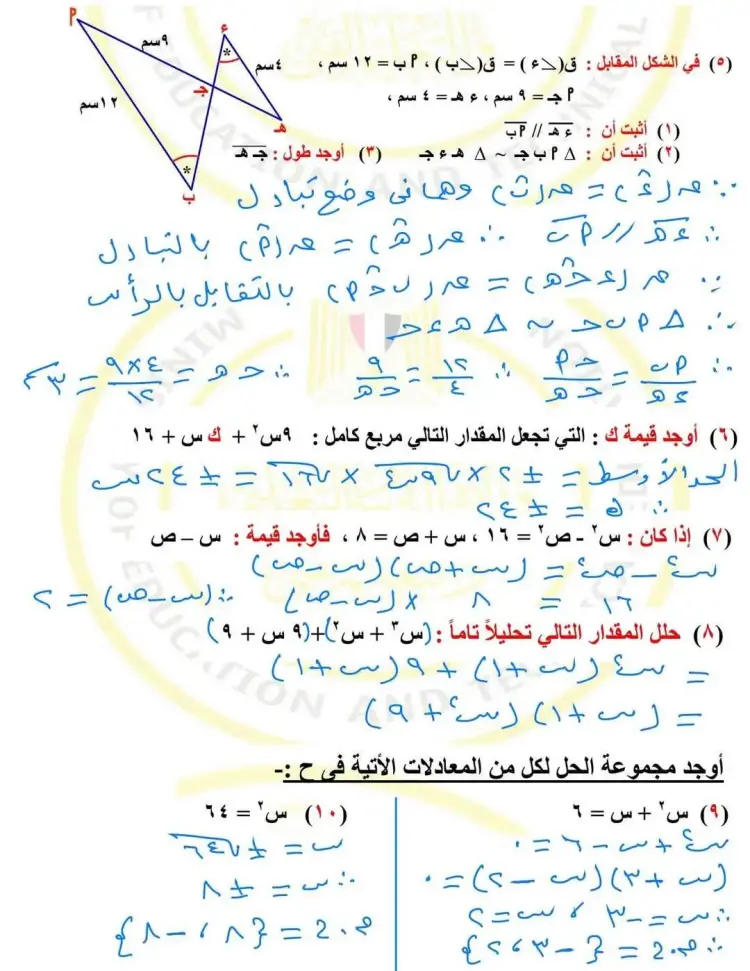 (٥) في الشكل المقابل : ق(∠ء) = ق(∠ب) ، ٩ب = ١٢ سم ،
٩جـ = ٩ سم ، ء هـ = ٤ سم ،
(١) أثبت أن : ء هـ // ٩ب
(٢) أثبت أن : Δ ٩ ب جـ ~ Δ هـ ء جـ (٣) أوجد طول : جـ هـ
٩
٩سم
ء
*
٤سم
جـ
١٢سم
هـ
*
ب
∵ ق(ءَ) = ق(بَ) وهما فى وضع تبادل
∴ ء هـ // ٩ب ∴ ق(هـ) = ق(٩) بالتبادل
∵ ق(ء جـ هـ) = ق(ب جـ ٩) بالتقابل بالرأس
∴ Δ ٩ ب جـ ~ Δ هـ ء جـ
∴ ٩ب/ء هـ = ٩جـ/جـ هـ ∴ ١٢/٤ = ٩/جـ هـ ∴ جـ هـ = ٤×٩/١٢ = ٣سم
(٦) أوجد قيمة ك : التي تجعل المقدار التالي مربع كامل : ٩س٢ + ك س + ١٦
الحد الأوسط = ± ٢ × √٩س٢ × √١٦ = ± ٢٤س
∴ ك = ± ٢٤
(٧) إذا كان : س٢ - ص٢ = ١٦ ، س + ص = ٨ ، فأوجد قيمة : س – ص
س٢ – ص٢ = (س+ص)(س–ص)
١٦ = ٨ × (س–ص) ∴ (س–ص) = ٢
(٨) حلل المقدار التالي تحليلاً تاماً : (س٣ + س٢)+(٩ س + ٩)
= س٢(س+١) + ٩(س+١)
= (س+١)(س٢+٩)
أوجد مجموعة الحل لكل من المعادلات الأتية في ح :-
(٩) س٢ + س = ٦
س٢ + س – ٦ = ٠
(س+٣)(س–٢) = ٠
∴ س = –٣ ، س = ٢
∴ م.ح = {–٣ ، ٢}
(١٠) س٢ = ٦٤
س = ± √٦٤
∴ س = ± ٨
م.ح = {٨ ، –٨}